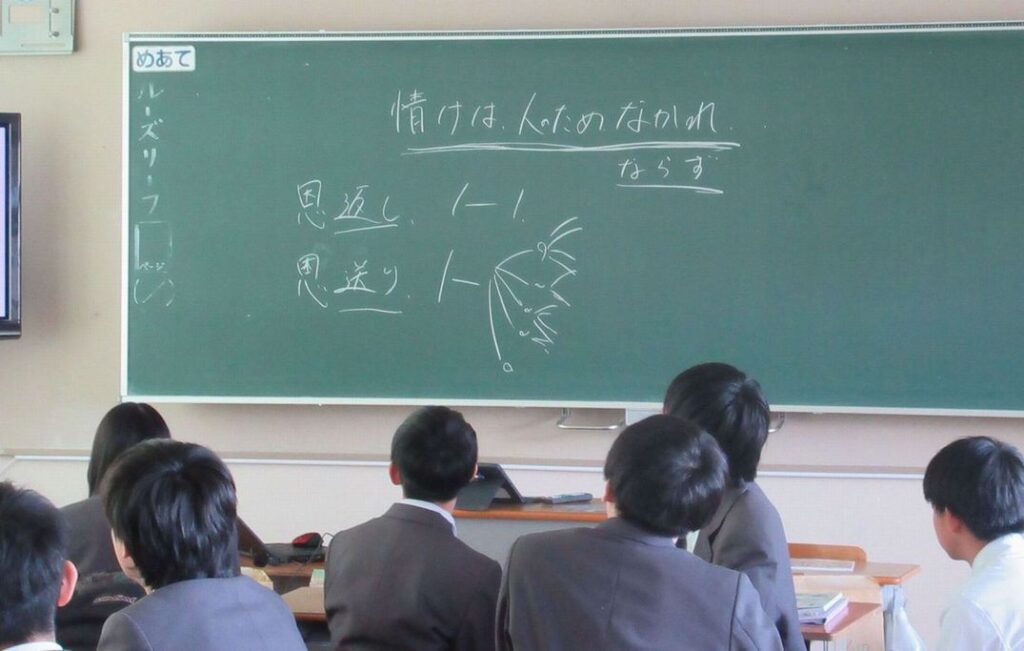 めあて
ルーズリーフ
ページ
(／)
情けは、人のためなかれ.
ならず
恩返し、 1ー1.
恩送り、 1ー